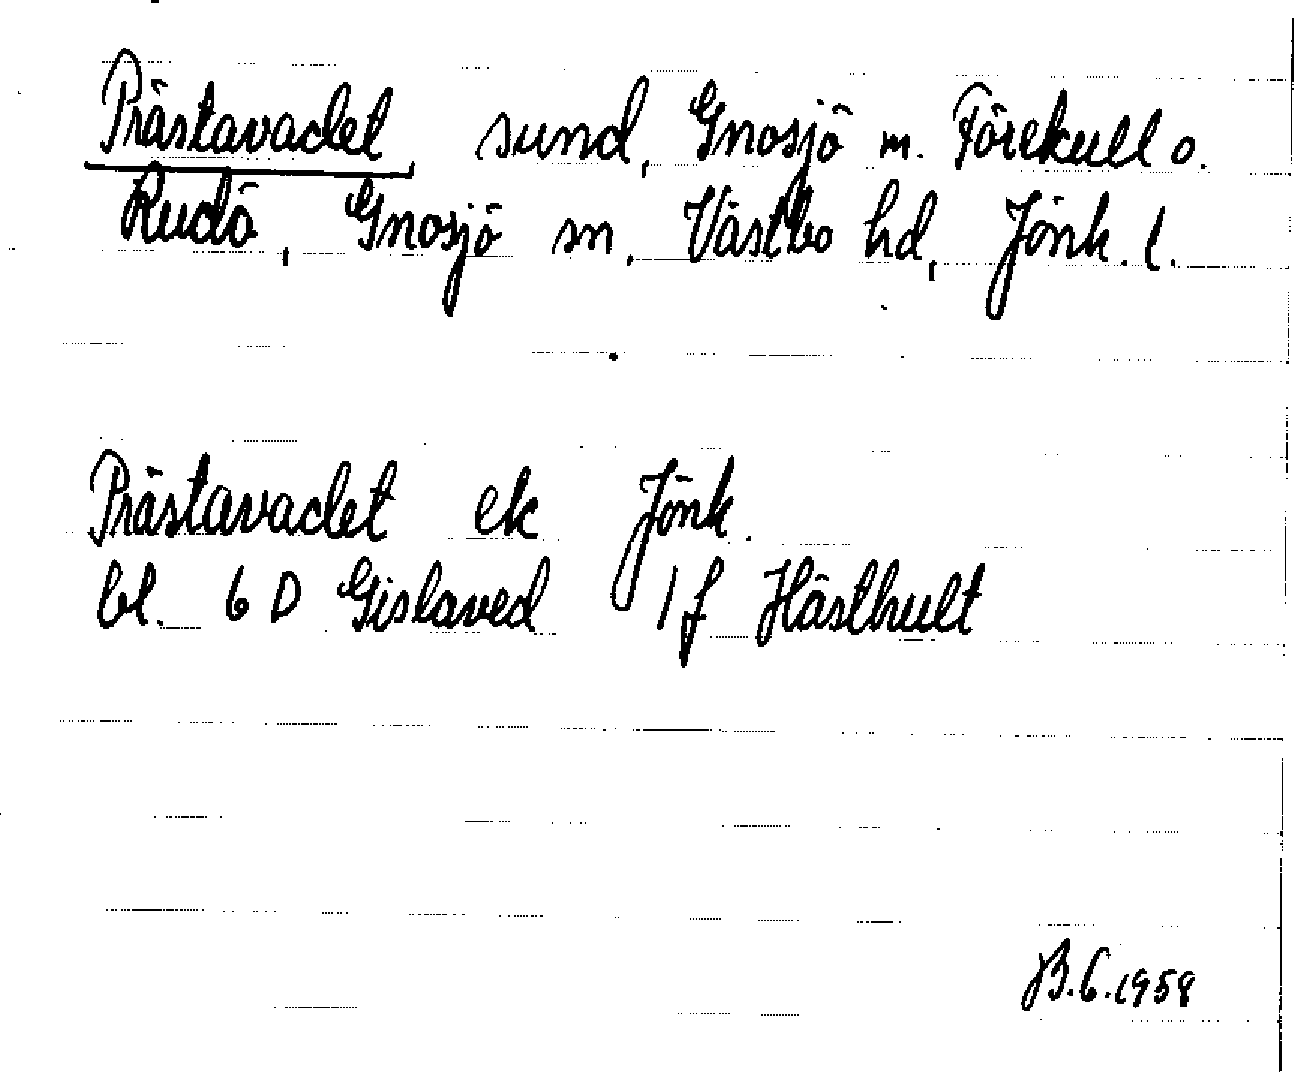 Prästavadet, sund, Gnosjö m. Förekull o.
Rudö, Gnosjö sn, Västbo hd, Jönk. l.
Prästavadet ek Jönk.
bl. 6 D Gislaved 1 f Hästhult
B.C.1958